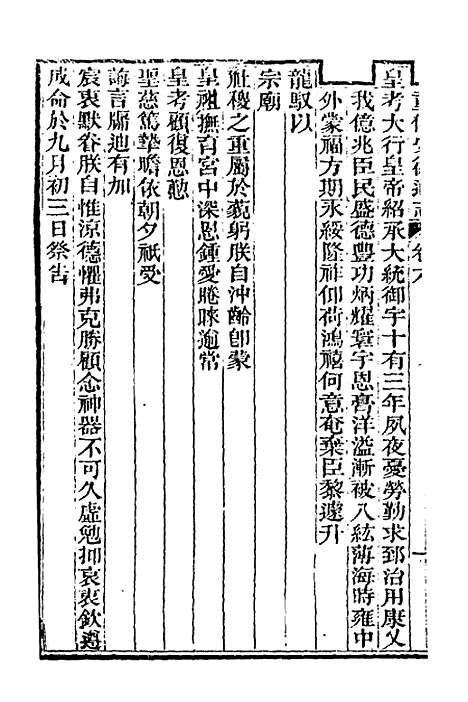 皇考大行皇帝紹承大統御宇十有三年夙夜憂勞勤求郅治用康乂
我億兆臣民盛德豐功炳耀寰宇恩膏洋溢漸被八紘薄海時雍中
外蒙福方期永綏隆祥仰荷鴻禧何意奄棄臣黎遽升
龍馭以
宗廟
社稷之重屬於藐躬朕自沖齡卽蒙
皇祖撫育宮中深恩鍾愛睠睞逾常
皇考顧復恩慈
聖慈篤摯瞻依朝夕祇受
誨言牖迪有加
宸衷默眷朕自惟涼德懼弗克勝顧念神器不可久虛勉抑哀衷欽遵
成命於九月初三日祭告